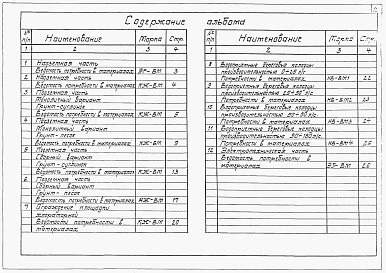 2
Содержание альбома
№ п/п Наименование Марка Стр.
1 2 3 4
1 Надземная часть
Ведомость потребности в материалах АР-ВМ 3
2 Надземная часть
Ведомость потребности в материалах КЖ-ВМ 4
3 Подземная часть
Монолитный вариант
Грунт-суглинок
Ведомость потребности в материалах КЖ-ВМ 5
4 Подземная часть
Монолитный вариант
Грунт-песок
Ведомость потребности в материалах КЖ-ВМ 9
5 Подземная часть
Сборный вариант
Грунт-суглинок
Ведомость потребности в материалах КЖ-ВМ 13
6 Подземная часть
Сборный вариант
Грунт-песок
Ведомость потребности в материалах КЖ-ВМ 17
7 Ограждение площадки
Ведомости потребности в КЖ-ВМ 20
материалах
№ п/п Наименование Марка Стр.
1 2 3 4
8 Водоприемные береговые колодцы
производительностью
Потребности в материалах НВ-ВМ1 22
9 Водоприемные береговые колодцы
производительностью
Потребности в материалах НВ-ВМ2 23
10 Водоприемные береговые колодцы
производительностью
Потребности в материалах НВ-ВМ3 24
11 Водоприемные береговые колодцы
производительностью
Потребности в материалах НВ-ВМ4 25
12 Электротехническая часть
Ведомость потребности в
материалах ЭЛ-ВМ 26